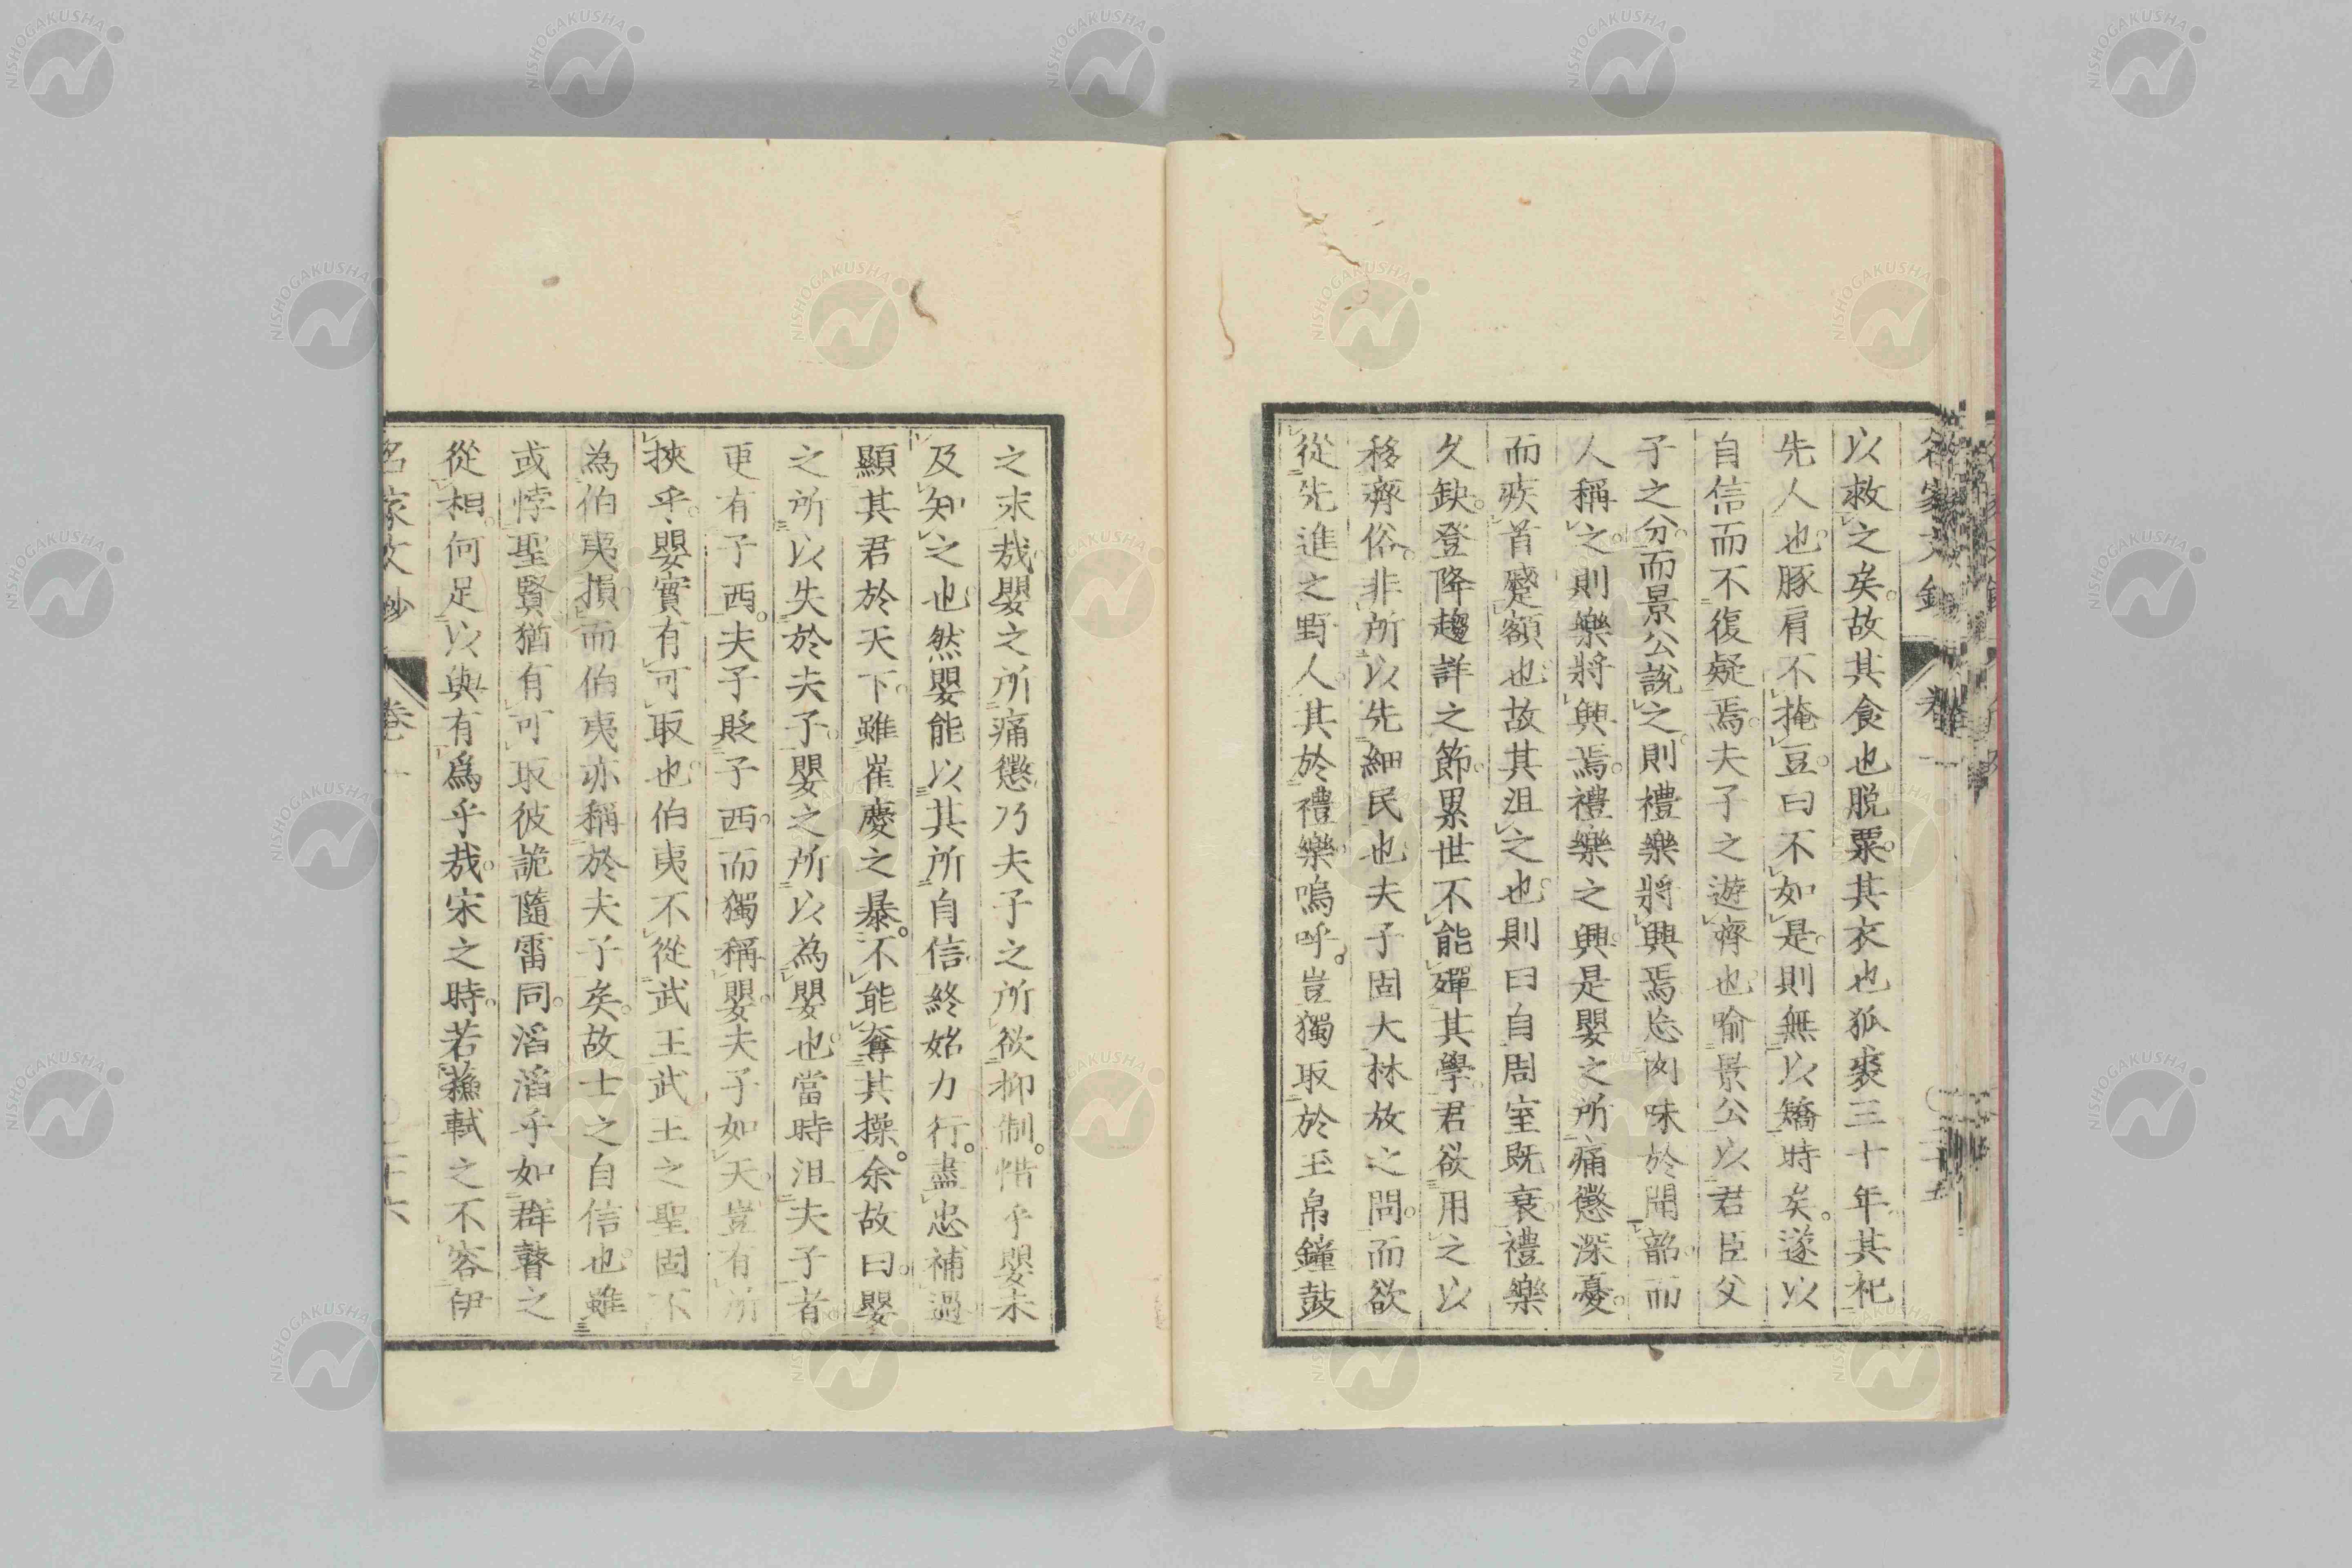 以救之矣。故其食也脱粟。其衣也狐裘三十年。其祀
先人也。豚肩不掩豆。曰不如是。則無以矯時矣。遂以
自信而不復疑焉。夫子之遊齊也。喻景公以君臣父
子之分。而景公說之。則禮樂將興焉。忘肉味於聞韶。而
人稱之。則樂將興焉。禮樂之興。是嬰之所痛懲深憂。
而疾首蹙額也。故其沮之也。則曰自周室既衰。禮樂
久缺。登降趨詳之節。累世不能殫其學。君欲用之以
移齊俗。非所以先細民也。夫子固大林放之問。而欲
從先進之野人。其於禮樂。嗚呼。豈獨取於玉帛鐘鼓
之末哉。嬰之所痛懲。乃夫子之所欲抑制。惜乎嬰未
及知之也。然嬰能以其所自信。終始力行。盡忠補過。
顯其君於天下。雖崔慶之暴。不能奪其操。余故曰。嬰
之所以失於夫子。嬰之所以為嬰也。當時沮夫子者
更有子西。夫子貶子西。而獨稱嬰。夫子如天。豈有所
挾乎。嬰實有可取也。伯夷不從武王。武王之聖固不
為伯夷損。而伯夷亦稱於夫子矣。故士之自信也。雖
或悖聖賢。猶有可取。彼詭隨雷同。滔滔乎如群瞽之
從相。何足以與有爲乎哉。宋之時。若蘓軾之不容伊
名家文鈔
卷一
NISHOGAKUSHA